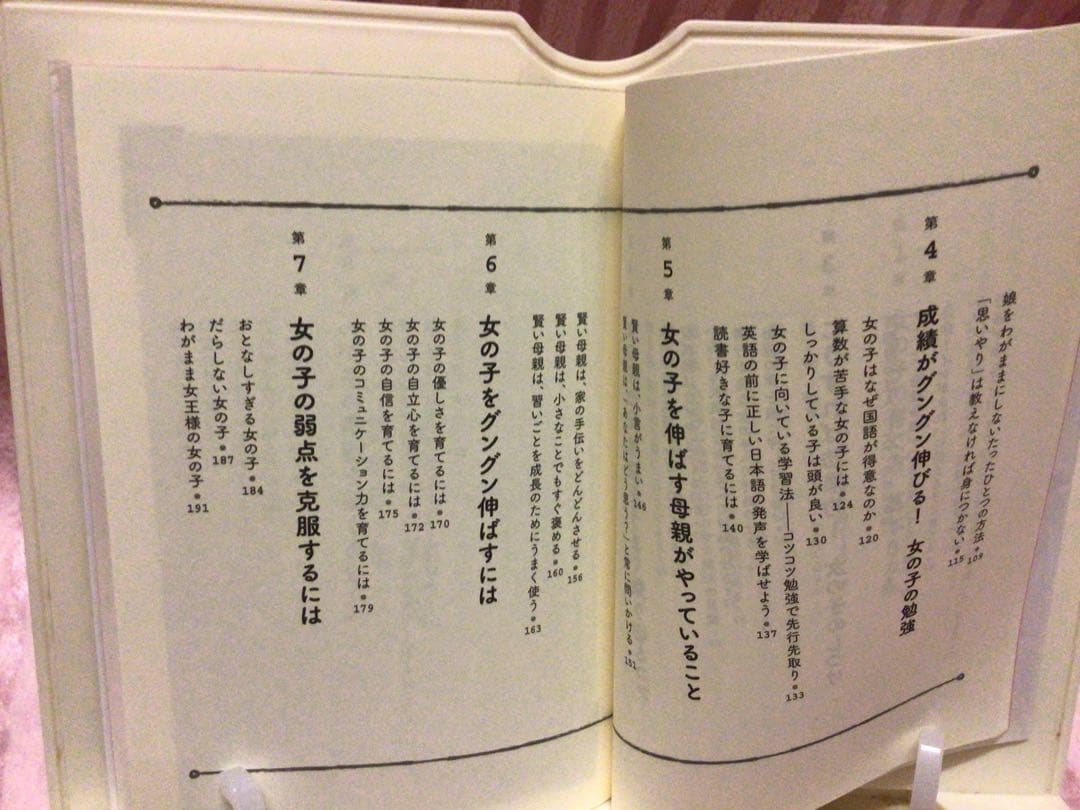 娘をわがままにしないたったひとつの方法●109
「思いやり」は教えなければ身につかない●115
第4章 成績がグングン伸びる! 女の子の勉強
女の子はなぜ国語が得意なのか●120
算数が苦手な女の子には●124
しっかりしている子は頭が良い●130
女の子に向いている学習法――コツコツ勉強で先行先取り●133
英語の前に正しい日本語の発声を学ばせよう●137
読書好きな子に育てるには●140
第5章 女の子を伸ばす母親がやっていること
賢い母親は、小言がうまい●146
賢い母親は、「あなたはどう思う?」と常に問いかける●151
賢い母親は、家の手伝いをどんどんさせる●156
賢い母親は、小さなことでもすぐ褒める●160
賢い母親は、習いごとを成長のためにうまく使う●163
第6章 女の子をグングン伸ばすには
女の子の優しさを育てるには●170
女の子の自立心を育てるには●172
女の子の自信を育てるには●175
女の子のコミュニケーション力を育てるには●179
第7章 女の子の弱点を克服するには
おとなしすぎる女の子●184
だらしない女の子●187
わがまま女王様の女の子●191